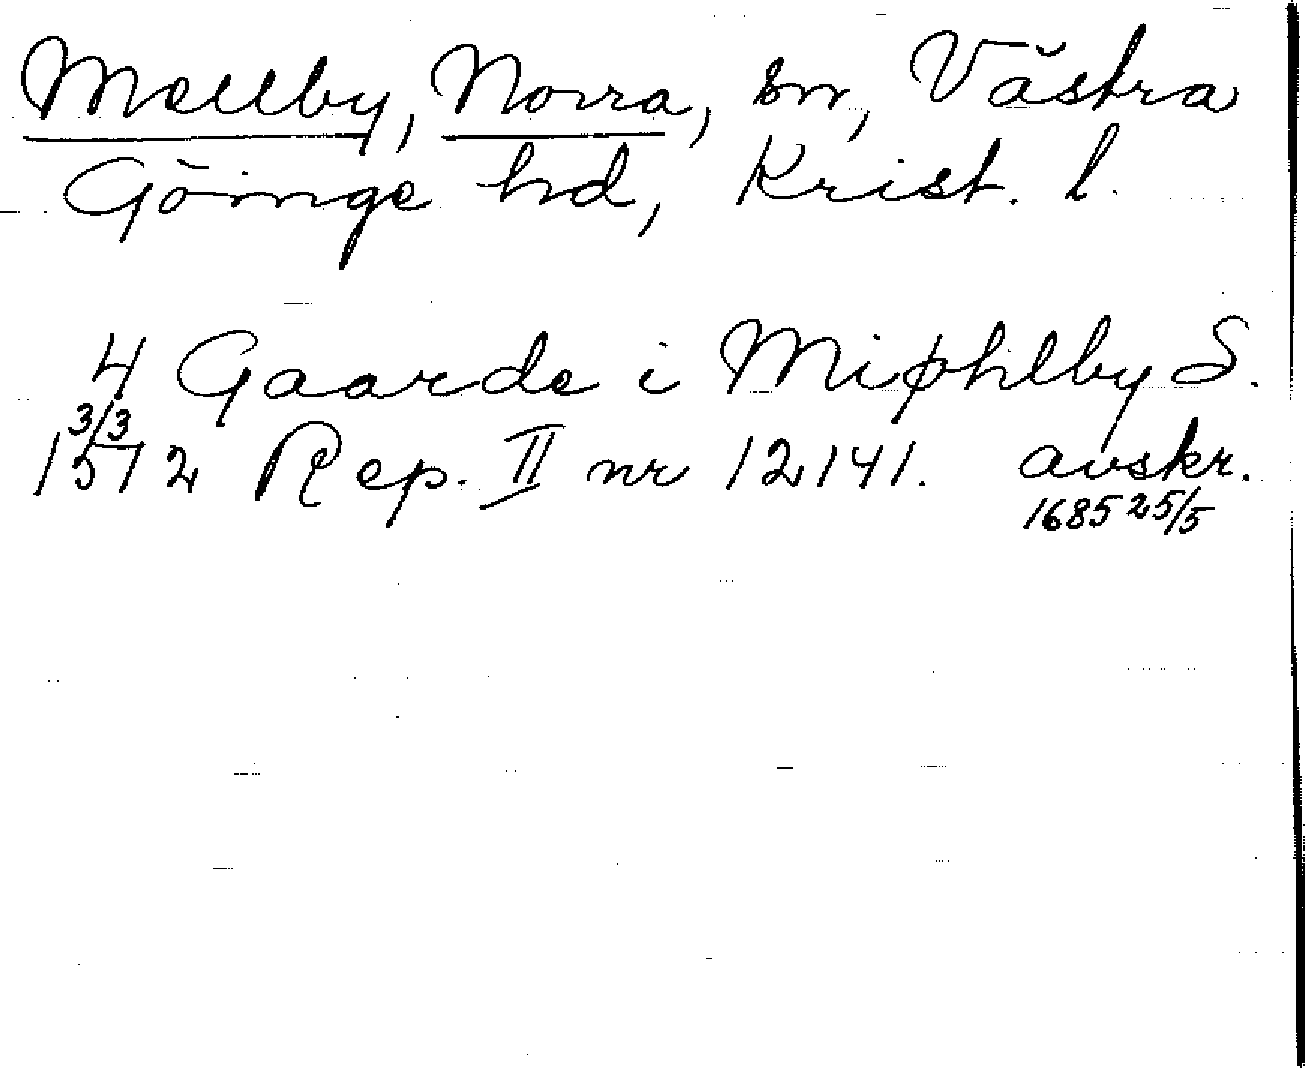 Mellby, Norra, sn, Västra
Göinge hd, Krist. l.
4 Gaarde i Miøhlby S.
3/3
1512 Rep. II nr 12141. avskr.
1685 25/5